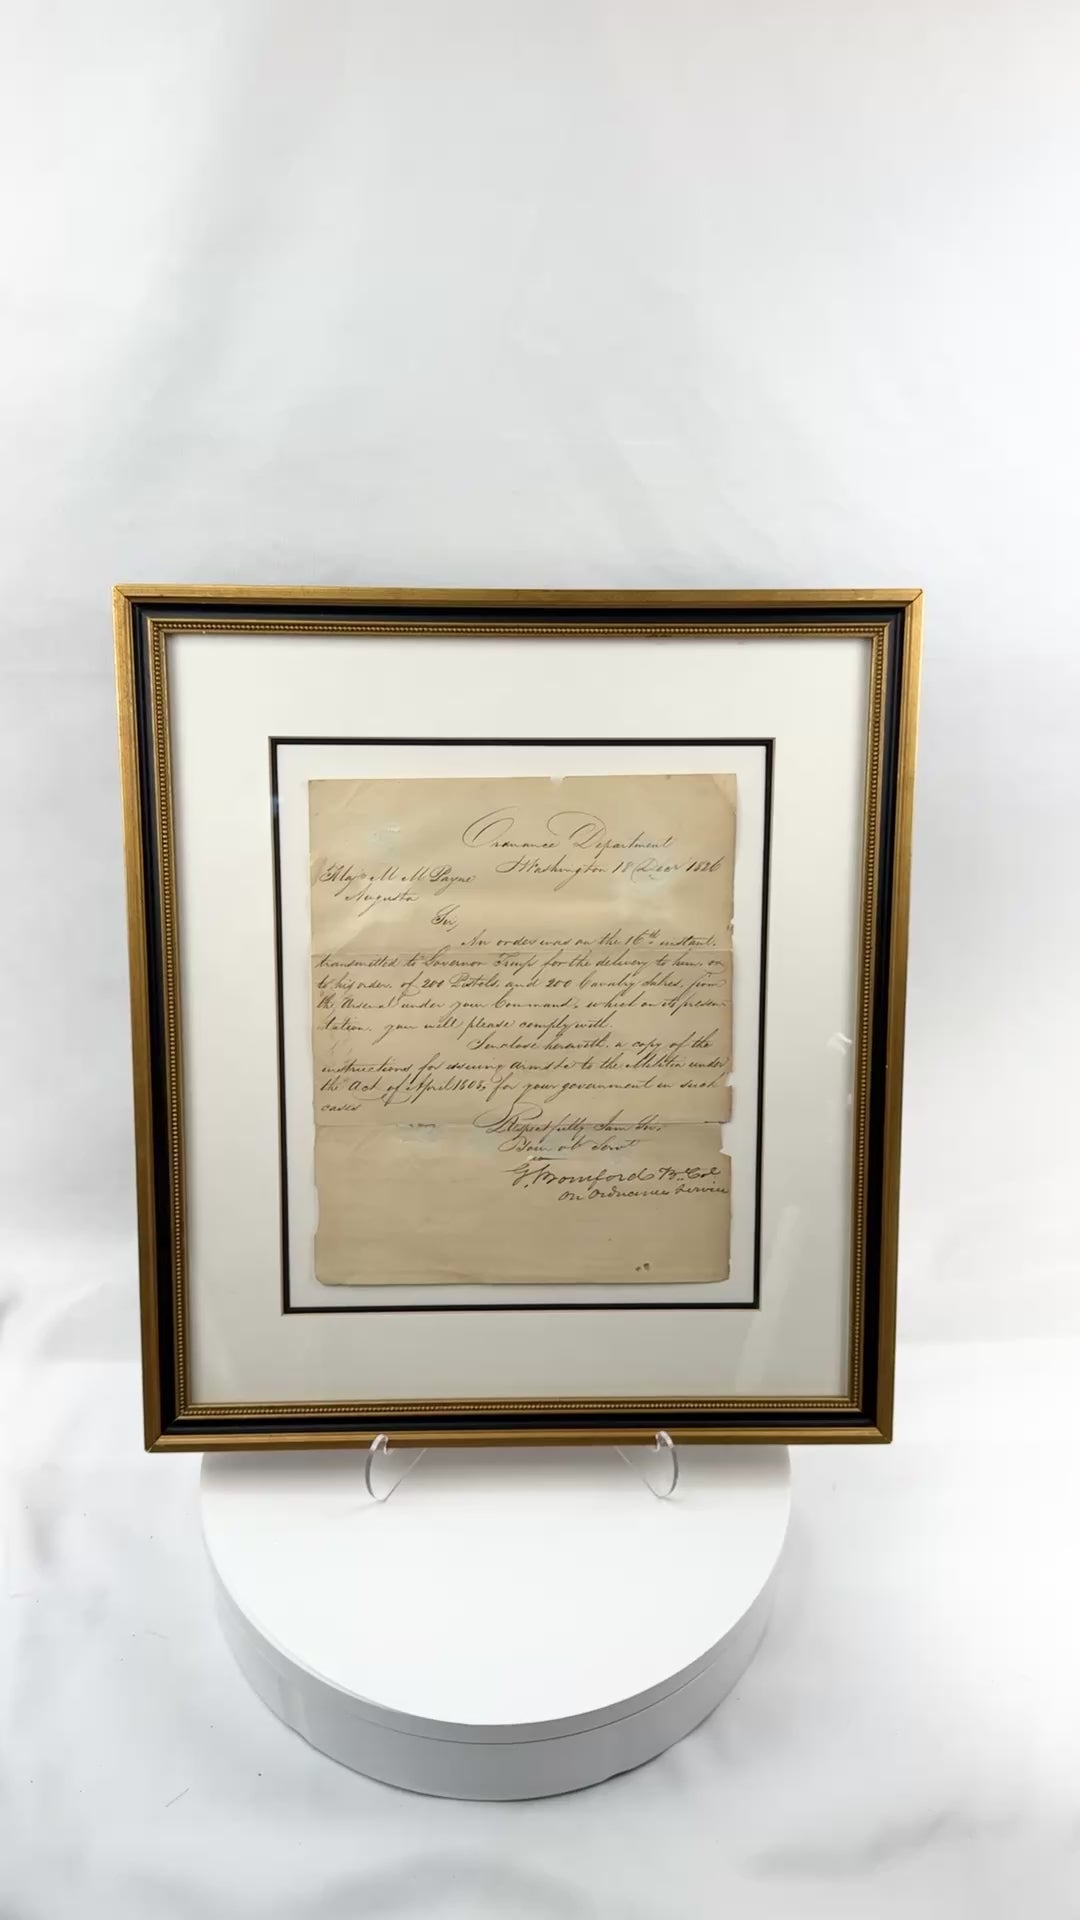 Ordnance Department
Washington 18 Decr 1826
Maj M M Payne
Augusta
Sir,
An order was on the 16th instant,
transmitted to Governor Troup for the delivery to him, or
to his order, of 200 Pistols, and 200 Cavalry Sabres, from
the Arsenal under your Command, which on its presen-
tation, you will please comply with.
I enclose herewith, a copy of the
instructions for issuing Arms &c to the Militia under
the Act of April 1808, for your government in such
cases
Respectfully I am Sir,
Your ob Servt
G. Bomford Bt Col
on Ordnance Service